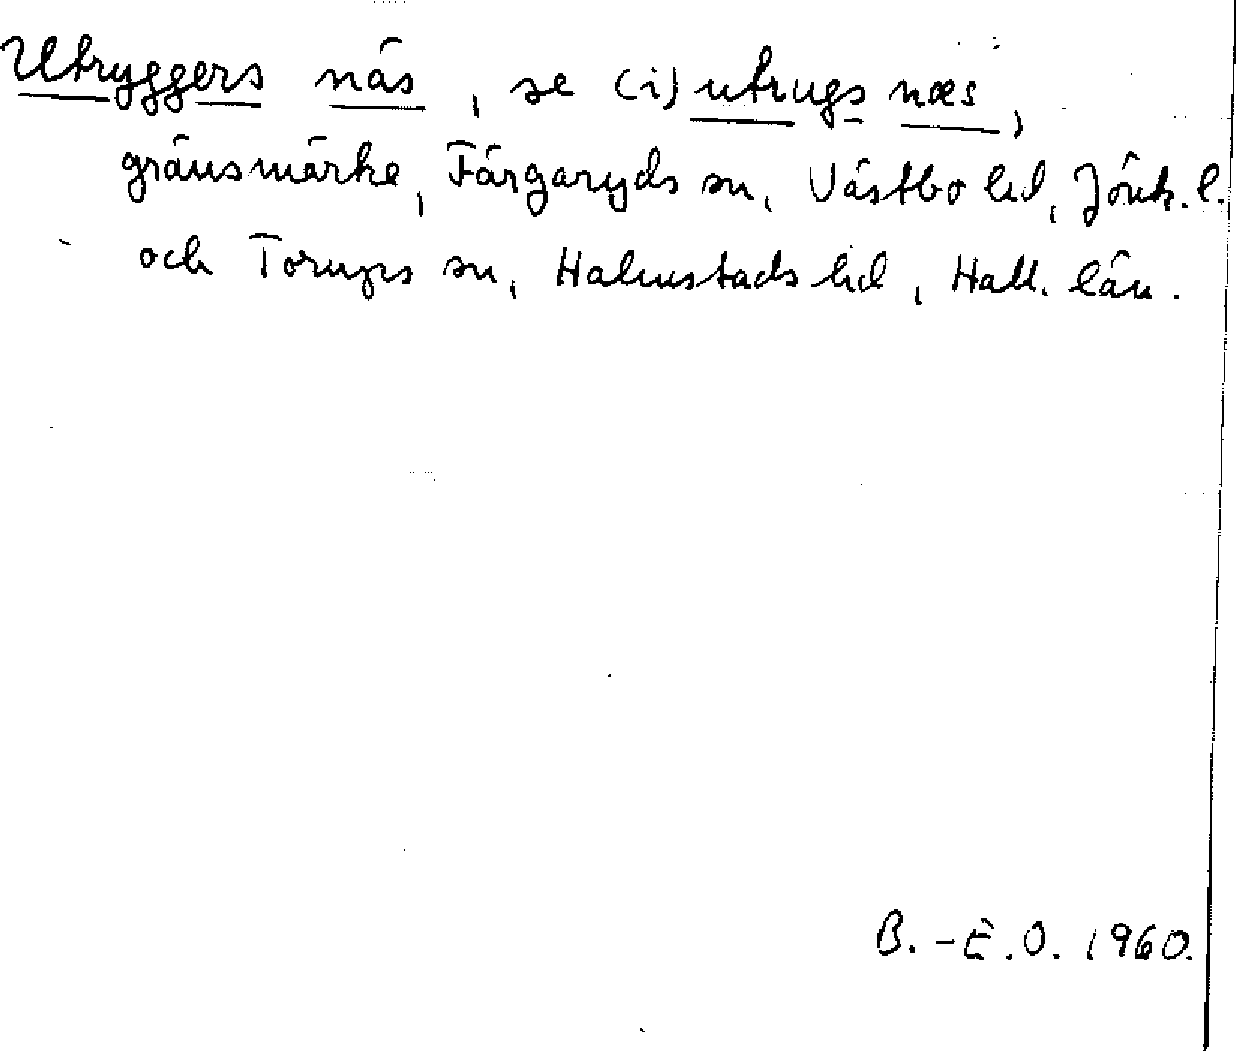 Utryggers näs, se (i) utrugs næs,
gränsmärke, Färgaryds sn, Västbo hd, Jönk. l.
och Torups sn, Halmstads hd, Hall. län.
B.-E.O. 1960.